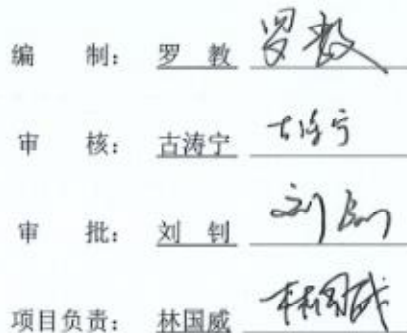 编 制: 罗 教 罗教
审 核: 古涛宁 古涛宁
审 批: 刘 钊 刘钊
项目负责: 林国威 林国威